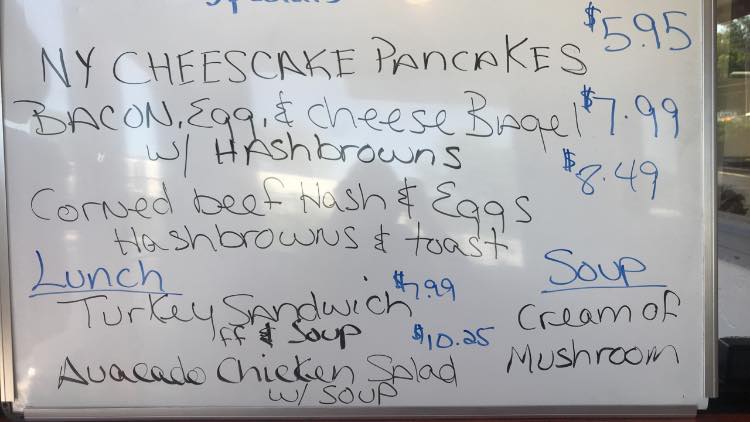 Specials
NY CHEESCAKE PANCAKES $5.95
BACON, Egg, & cheese Bagel $7.99
w/ HAshbrowns
Corned beef Hash & Eggs $8.49
HAshbrowns & toast
Lunch
Turkey Sandwich $7.99
FF & Soup
Avacado Chicken Salad $10.25
w/ SOUP
Soup
Cream of
Mushroom